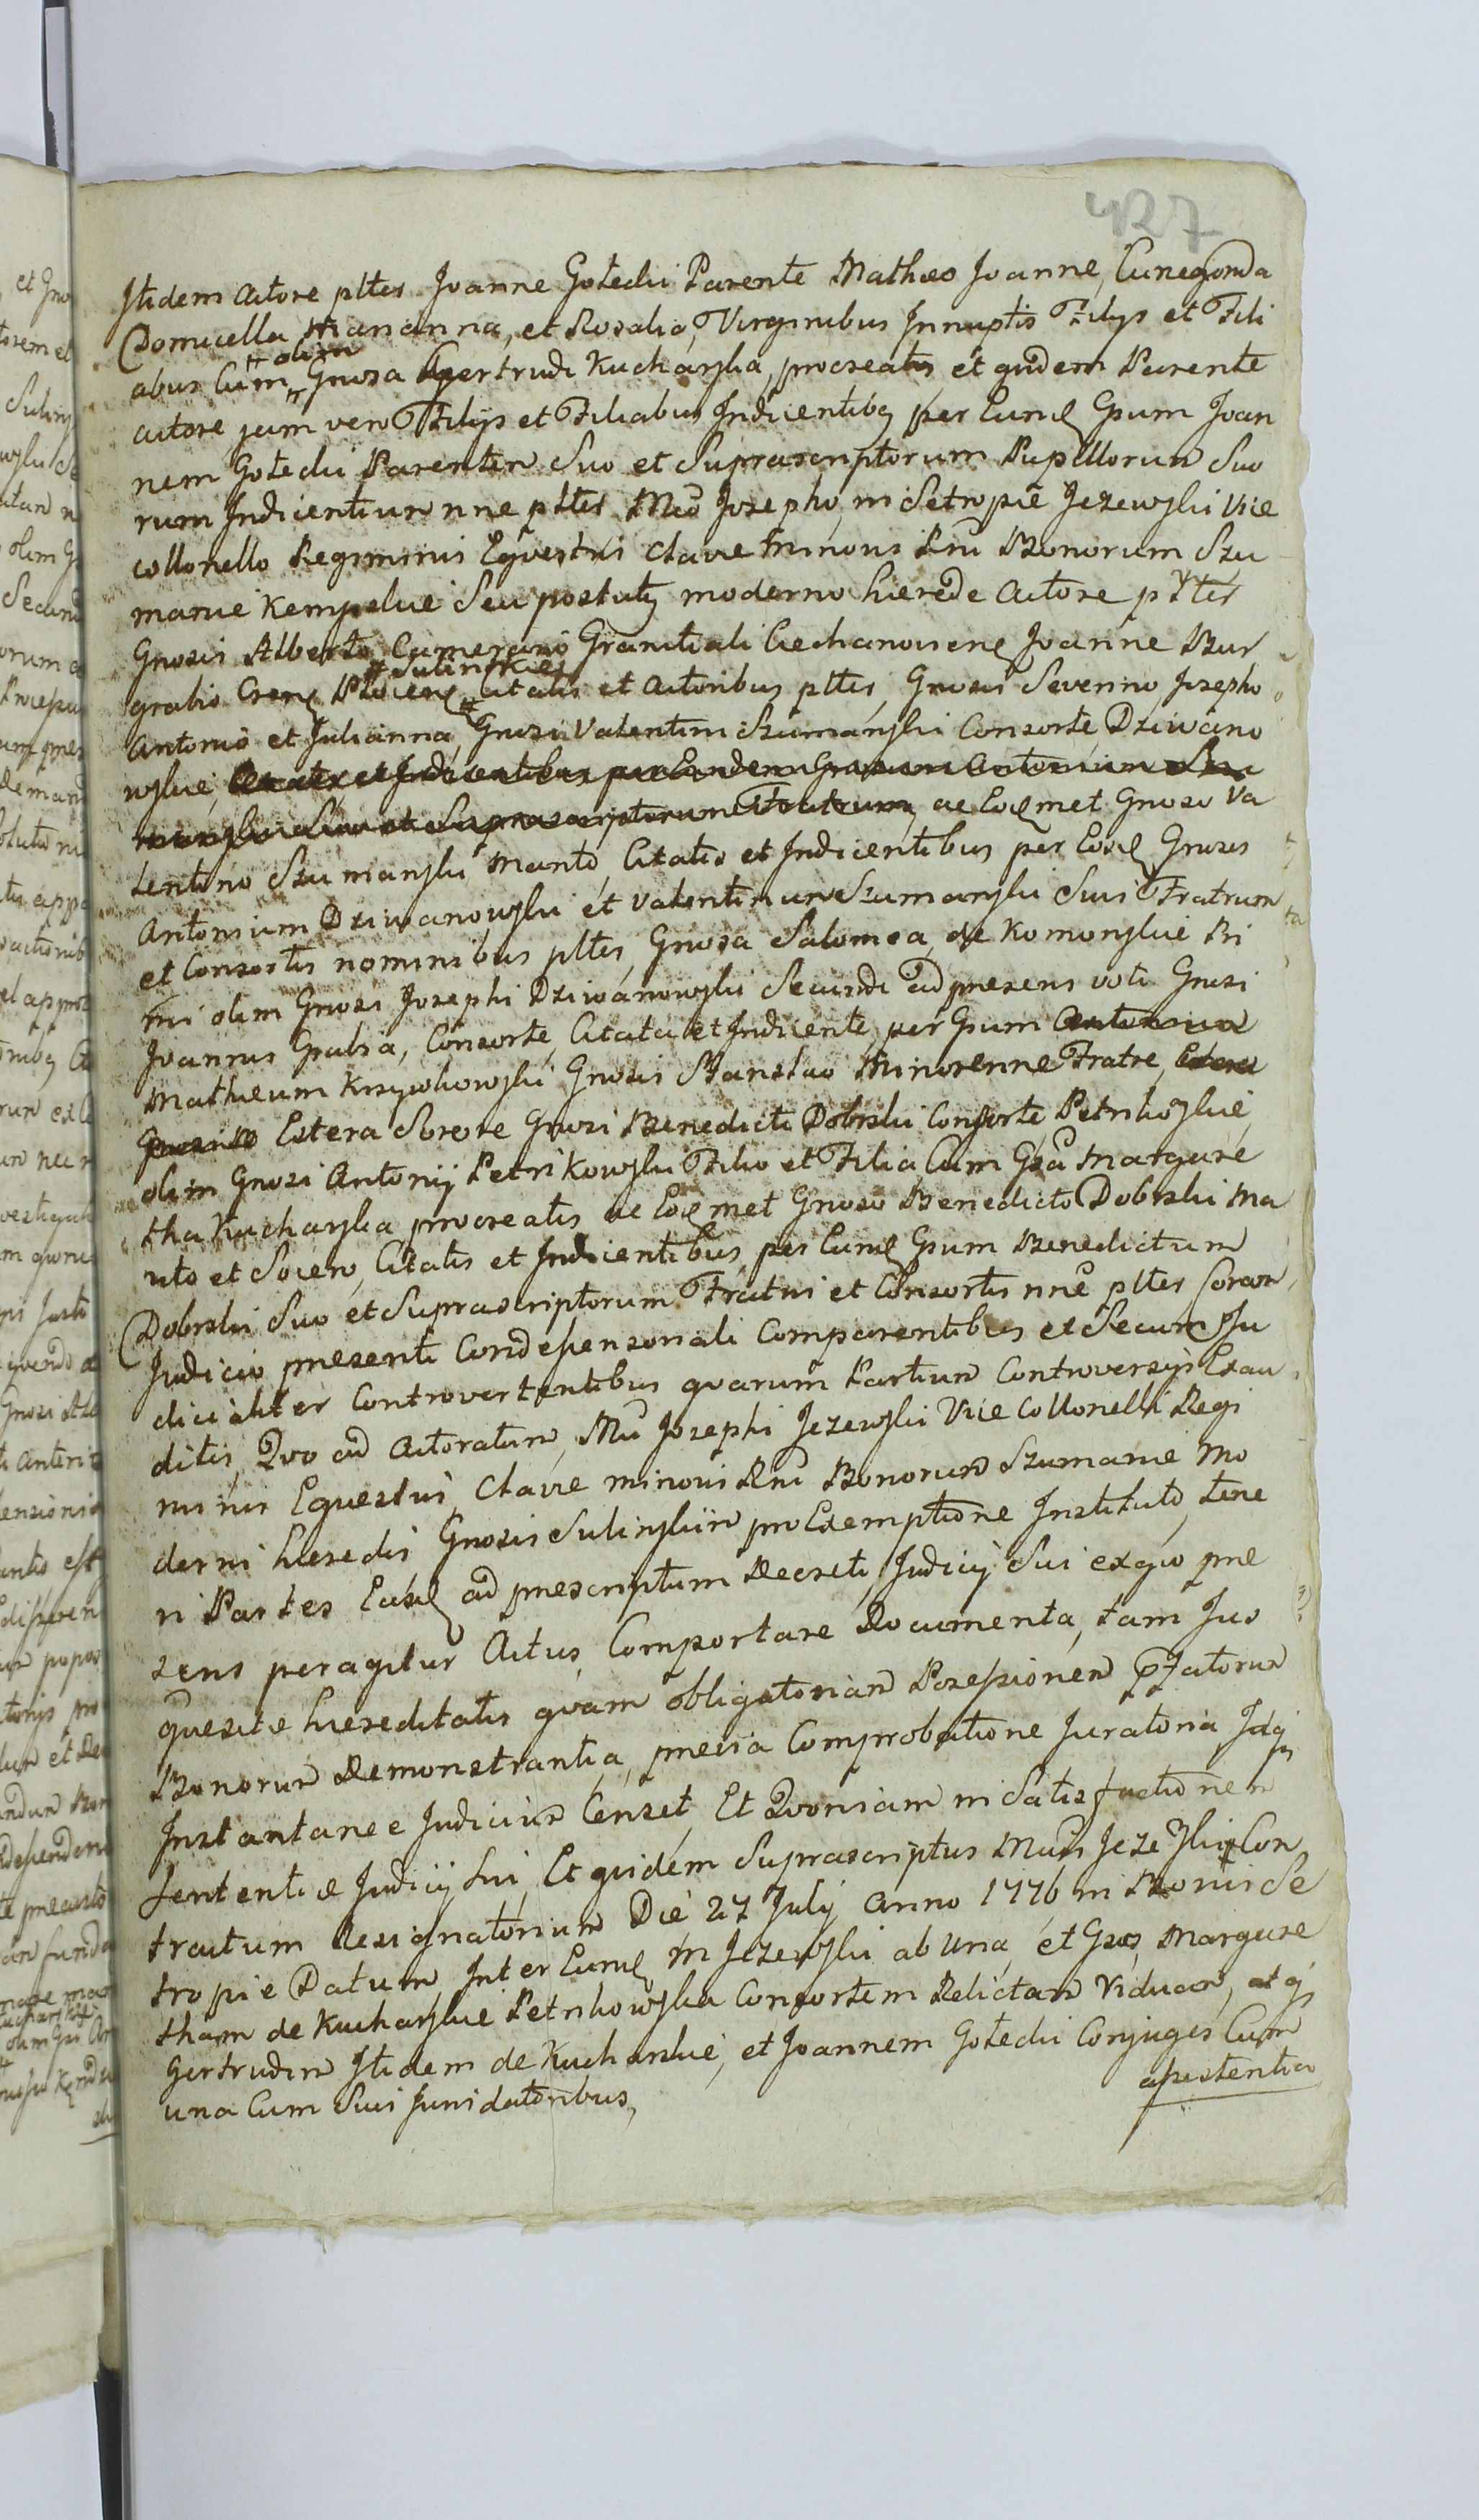 427
Itidem Actore pltes Joanne Gotedu Parente Mathæo Joanne, Cunegonda
Domicella Marianna, et Rosalia, Virginibus Innuptis Filijs et Fili
abus Cum # olim # Gnosa Gertrudi Kucharska, procreatis et quidem Parente
Actore jam vero Filijs et Filiabus Indicentibq per Eund Gsum Joan
nem Gotedu Parentem Suo et Suprascriptorum Pupillorum Suo
rum Indicentium nne pltes Mco Josepho in Setropie Jezewski Vice
collonello Regiminis Equestri Clavæ Minoris Rni Bonorum Szu
manie Kempskie Seu postutq moderno hærede Actore pltes
Gnosis Alberto Camerario Granitiali Ciechanoviens Joanne Bur
grabio Crens Plocens # Sulinskies # Citatis et Actoribus pltes, Gnosis Severino Josepho
Antonio et Julianna, Gnosi Valentini Szumanski Consorte, Dziwano
wskie, ac Eodmet Gnoso Va
lentino Szumanski Marito, Citatis et Indicentibus per Eosd Gnosos
Antonium Dziwanowski et Valentinum Szumanski Suis Fratrum
et Consortis nominibus pltes, Gnosa Salomea de Komonskie Pri
mi olim Gnosi Josephi Dziwanowski Secundi ad presens voti Gnosi
Joannis Grabia, Consorte, Citata et Indicente, per Gsum Antonium
Matheum Krzywkowski Gnosis Stanislao Minorenne Fratre,
Estera Sorore Gnosi Benedicti Dobrski Consorte Petrikoskie,
olim Gnosi Antonij Petrikowski Filio et Filia Cum Gsa Margare
tha Kucharska procreatis ac Eodmet Gnoso Benedicto Dobrski Ma
rito et Socero, Citatis et Indicentibus, per Eund Gsum Benedictum
Dobrski Suo et Suprascriptorum Fratris et Consortis nne pltes Coram
Judicio presenti Condesensonali Comparentibus et Secum Ju
dicialiter Controvertentibus quarum Partium Controversijs Exau
ditis, Quo ad Actoratum, Mci Josephi Jezewski Vice Collonelli Regi
minis Equestri, Clavæ minoris Rni Bonorum Szumanie Mo
derni hæredis Gnosis Sulinskim pro Exemptione Instituto, tene
ri Partes Easd ad prescriptum Decreti Judicij Sui ex quo pre
sens peragitur Actus, Comportare Documenta, tam Jus
quesitæ hæreditatis quam obligatoriam Possessionem pfatorum
Bonorum Demonstrantia, previa Comprobatione Juratoria Idq
Instantanee Judicium Censet, Et Quoniam in Satisfactionem
Sententiæ Judicij Sui Et quidem Suprascriptus Mcus Jezeski Con
tractum Resignatorium Die 27 July Anno 1776 in Bonis Se
tropie Datum, Inter Eund M Jezewski ab Una, et Gsas, Margare
tham de Kucharskie Petrikowska Consortem Relictam Viduam, atq
Gertrudem Itidem de Kucharskie, et Joannem Gotedu Conjuges Cum
una Cum Suis Junidatoribus,
assistentia